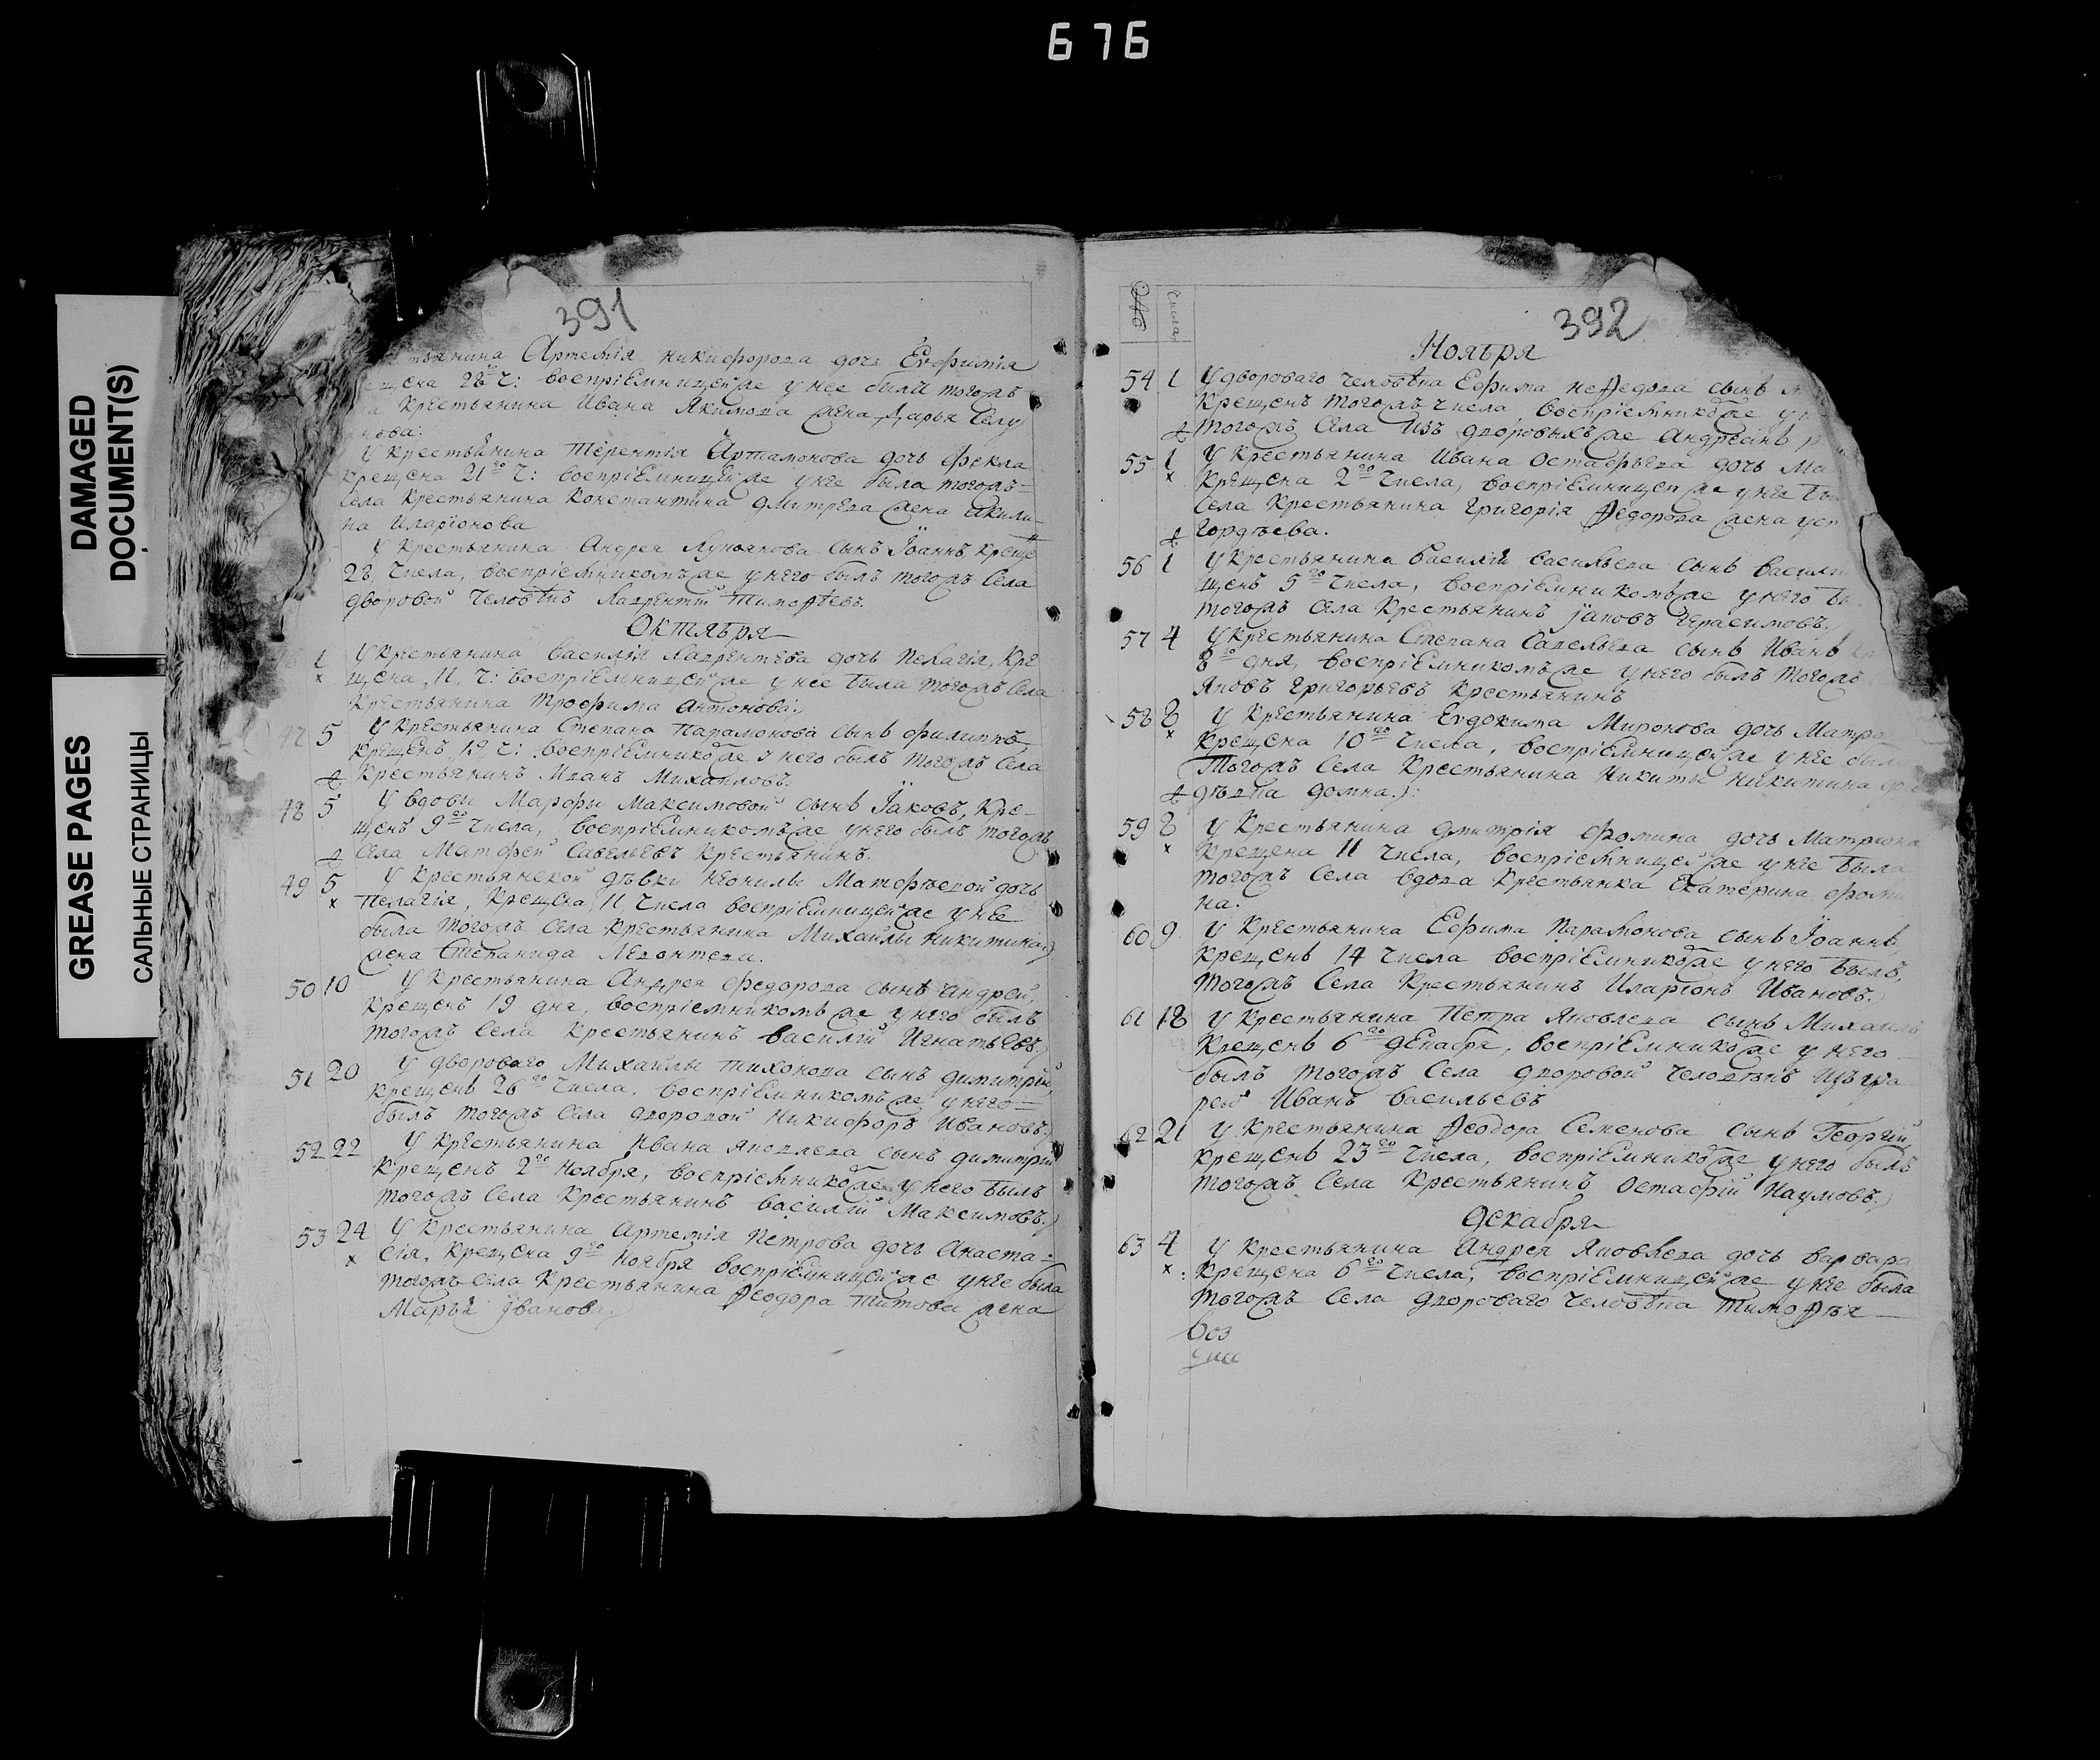 676
DAMAGED
DOCUMENT(S)
GREASE PAGES
САЛЬНЫЕ СТРАНИЦЫ
391
тьянина Артемія никифорова дочь Евфимія
щена 28 ч: воспріемницей же у нее была тогожъ
Крестьянина Ивана Якимова жена Дарья
нова:
У Крестьянина Терентія Артамонова дочь фекла
крещена 21го ч: воспріемницей же у нее была тогожъ
села Крестьянина Константина дмитрева жена акили-
на Иларіонова
У Крестьянина Андрея Лукьянова сынъ Іоаннъ креще
28 числа, воспріемникомъ же у него былъ тогожъ села
дворовой человѣкъ Лаврентій Тимоѳѣевъ.
Октября
1 У Крестьянина василія Лаврентева дочь Пелагія, кре
x щена, 11, ч: воспріемницей же у нее была тогожъ села
Крестьянина Трофима Антонова.
47 5 У Крестьянина Степана Парамонова сынъ филиппъ
крещенъ, 12 ч: воспріемникоже у него былъ тогожъ села
Крестьянинъ Иванъ Михайловъ.
48 5 У вдовы Марфы Максимовой сынъ Іаковъ, кре-
щенъ 9го числа, воспріемникомъ же у него былъ тогожъ
села Матфей Савельевъ Крестьянинъ.
49 5 У крестьянской дѣвки неонилы Матфѣевой дочь
x Пелагія, крещена, 11 числа воспріемницей же у нее
была тогожъ села Крестьянина Михайлы никитина
жена Степанида Леонтева.
50 10 У Крестьянина Андрея федорова сынъ андрей,
крещенъ 19 дня, воспріемникомъ же у него былъ
тогожъ села Крестьянинъ василій Игнатьевъ.
51 20 У дворового Михайлы тихонова сынъ димитрій
крещенъ 26го числа, воспріемникомъ же у него
былъ тогожъ села дворовой Никифоръ Ивановъ.
52 22 У Крестьянина Ивана яковлева сынъ димитрій
крещенъ 2го Ноября, воспріемникоже у него былъ
тогожъ села Крестьянинъ василій Максимовъ.
53 24 У Крестьянина Артемія Петрова дочь Анаста-
x сія, крещена 9го Ноября воспріемницей же у нее была
тогожъ села Крестьянина Ѳеодора Титова жена
Марья Иванова.
числа
392
Ноября
54 1 У двороваго человѣка Ефима неѳедова сынъ
крещенъ тогожъ числа, воспріемникоже у н
тогожъ села изъ дворовыхъ же Андреянъ
55 1 У Крестьянина Ивана Остафьева дочь Ма
x крещена 2го числа, воспріемницей же у нее бы
села Крестьянина Григорія Ѳедорова жена
Гордѣева.
56 1 У Крестьянина василій васильева сынъ васили
щенъ 5го числа, воспріемникомъ же у него бы
тогожъ села Крестьянинъ Іаковъ Герасимовъ.
57 4 У Крестьянина Степана Савельева сынъ Иванъ
8го дня, воспріемникомъ же у него былъ тогожъ
Яковъ григорьевъ Крестьянинъ
58 8 У Крестьянина Евдокима Миронова дочь Матро
x крещена 10го числа, воспріемницей же у нее был
тогожъ села Крестьянина Никиты Никитина до
дѣвка домна.):
59 8 У Крестьянина дмитрія фомина дочь Матрона
x крещена 11 числа, воспріемницей же у нее была
тогожъ села вдова Крестьянка Екатерина фоми
на.
60 9 У Крестьянина Ефима Парамонова сынъ Іоаннъ
крещенъ 14 числа воспріемникоже у него былъ,
тогожъ села Крестьянинъ Иларіонъ Ивановъ.
61 18 У Крестьянина Петра Яковлева сынъ Михаилъ
крещенъ 6го декабря, воспріемникоже у него
былъ тогожъ села дворовой человѣкъ
Иванъ васильевъ
62 21 У Крестьянина Ѳеодора Семенова сынъ Георгій
крещенъ 23го числа, воспріемникоже у него былъ
тогожъ села Крестьянинъ Остафій Наумовъ.
Декабря
63 4 У Крестьянина Андрея Яковлева дочь варвара
x крещена 6го числа, воспріемницей же у нее была
тогожъ села двороваго человѣка тимоѳѣя